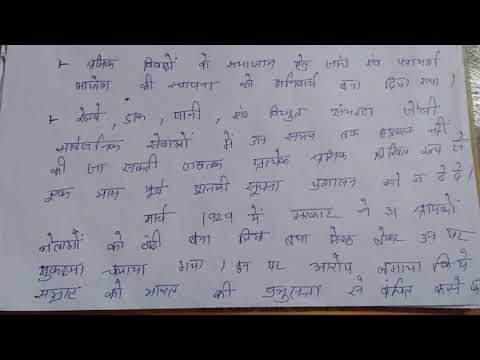 ⊢ श्रमिक विवादों के समाधान हेतु जांच एवं परामर्श
आयोग की स्थापना को अनिवार्य बना दिया गया।
⊢ रेलवे, डाक, पानी, एवं विद्युत संभरण जैसी
सार्वजनिक सेवाओं में उस समय तक हड़ताल नहीं
की जा सकती जबतक प्रत्येक श्रमिक लिखित रूप से
एक माह पूर्व इसकी सूचना प्रशासन को न दे दे।
मार्च 1929 में सरकार ने 31 श्रमिकों
नेताओं को बंदी बना लिया तथा मेरठ लेकर उन पर
मुकदमा चलाया गया। इन पर आरोप लगाया कि ये
सम्राट को भारत की प्रभुसत्ता से वंचित करने